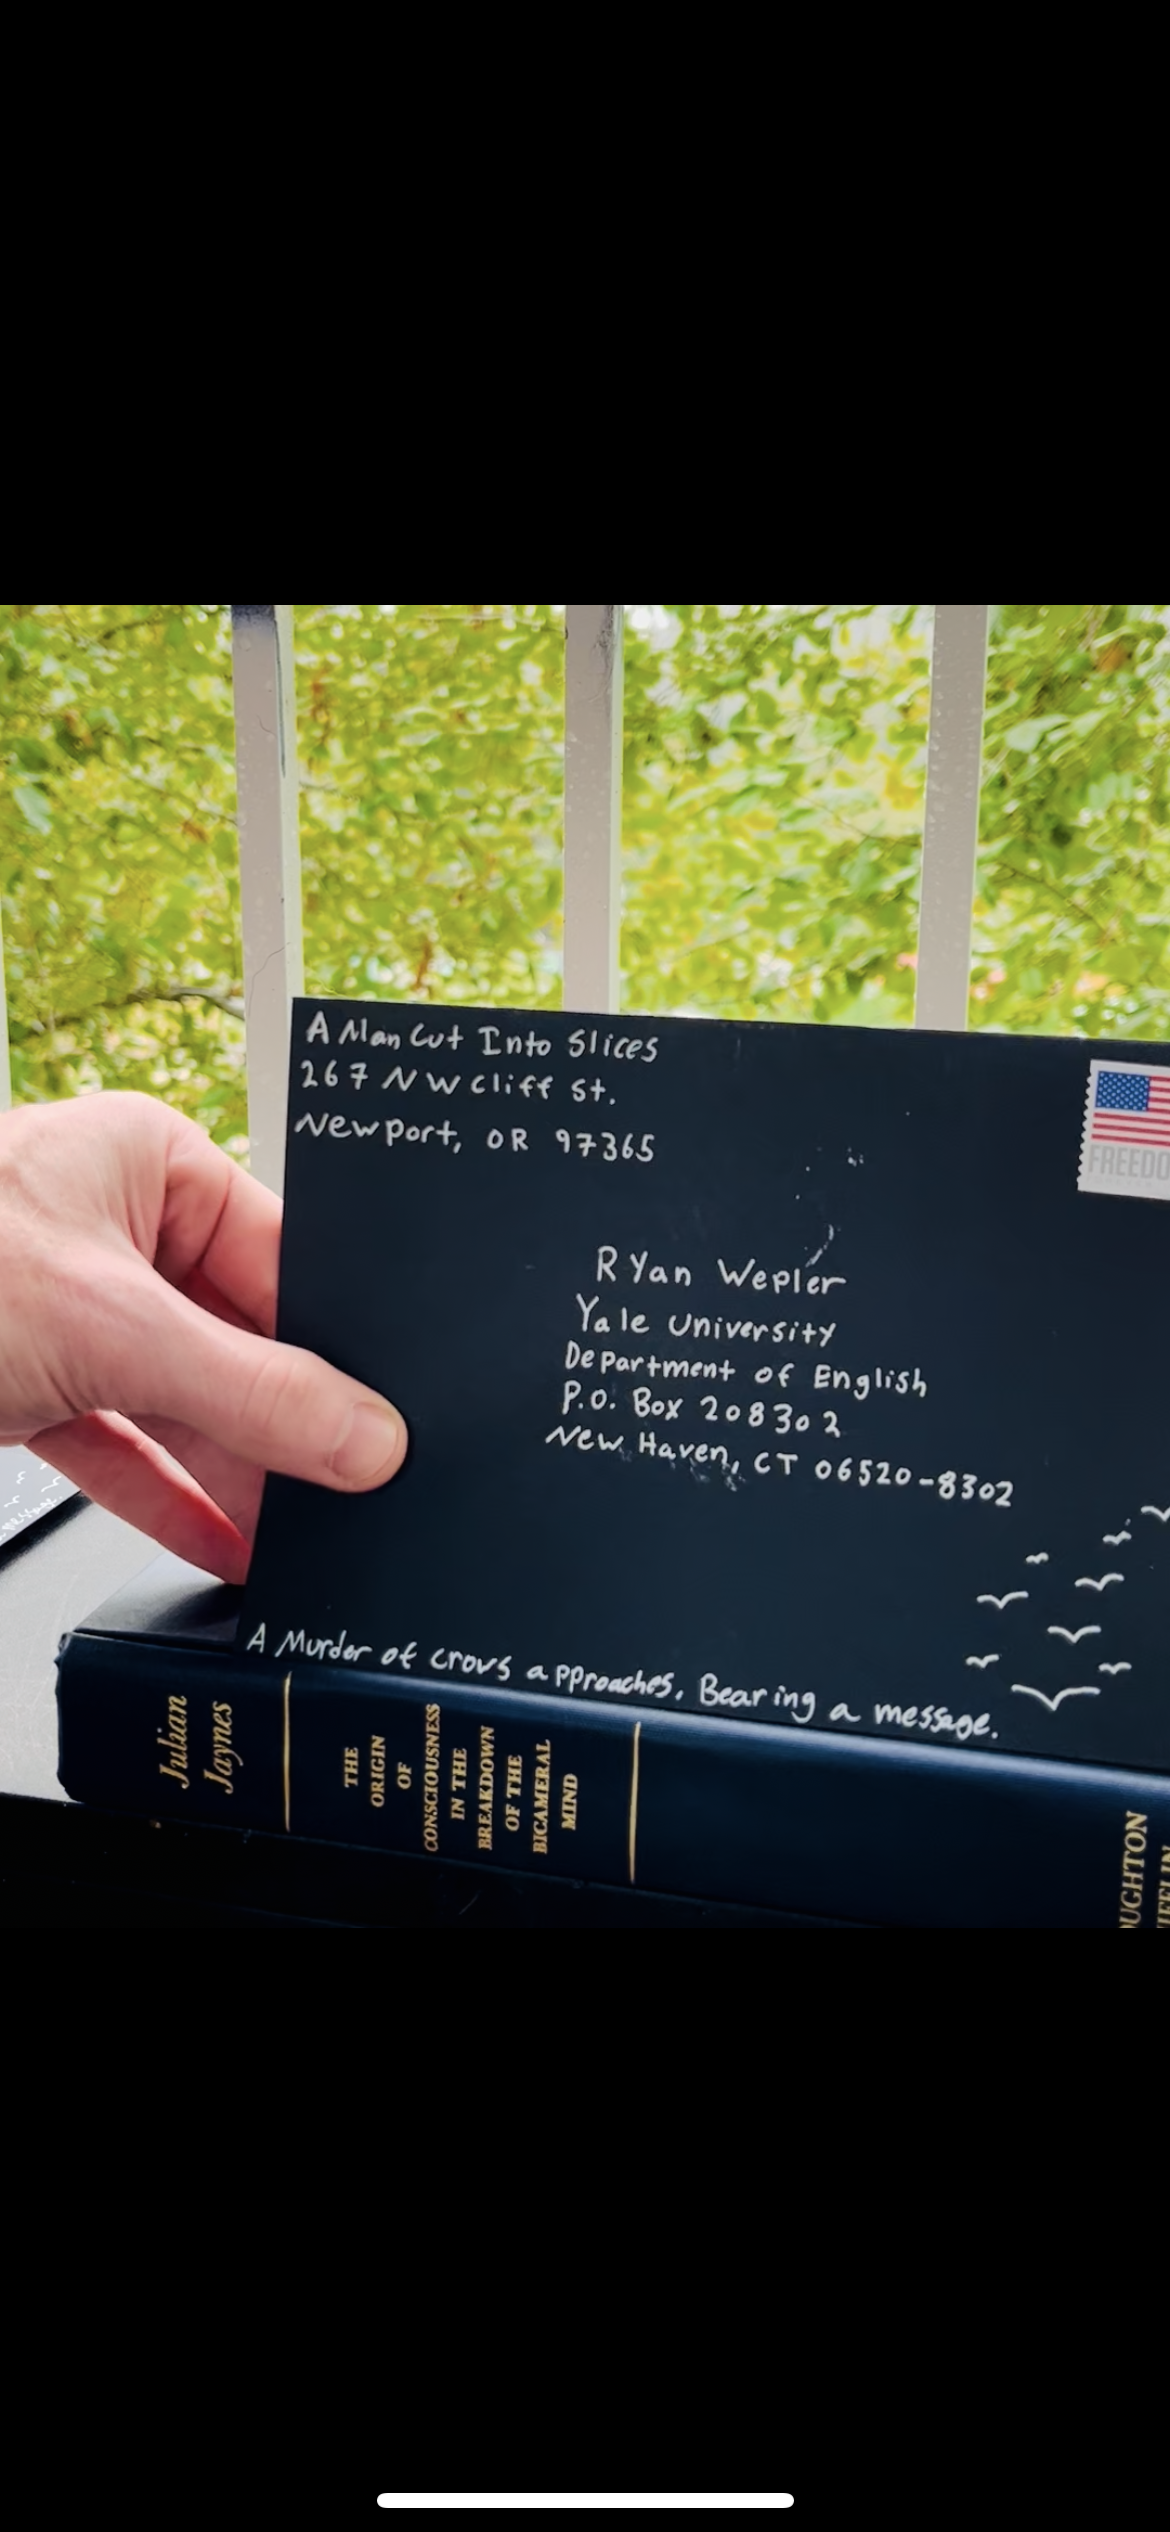 A Man Cut Into Slices
267 NW Cliff St.
Newport, OR 97365
FREEDO
Ryan Wepler
Yale University
Department of English
P.O. Box 208302
New Haven, CT 06520-8302
A Murder of crows approaches. Bearing a message.
Julian
Jaynes
THE
ORIGIN
OF
CONSCIOUSNESS
IN THE
BREAKDOWN
OF THE
BICAMERAL
MIND
OUGHTON